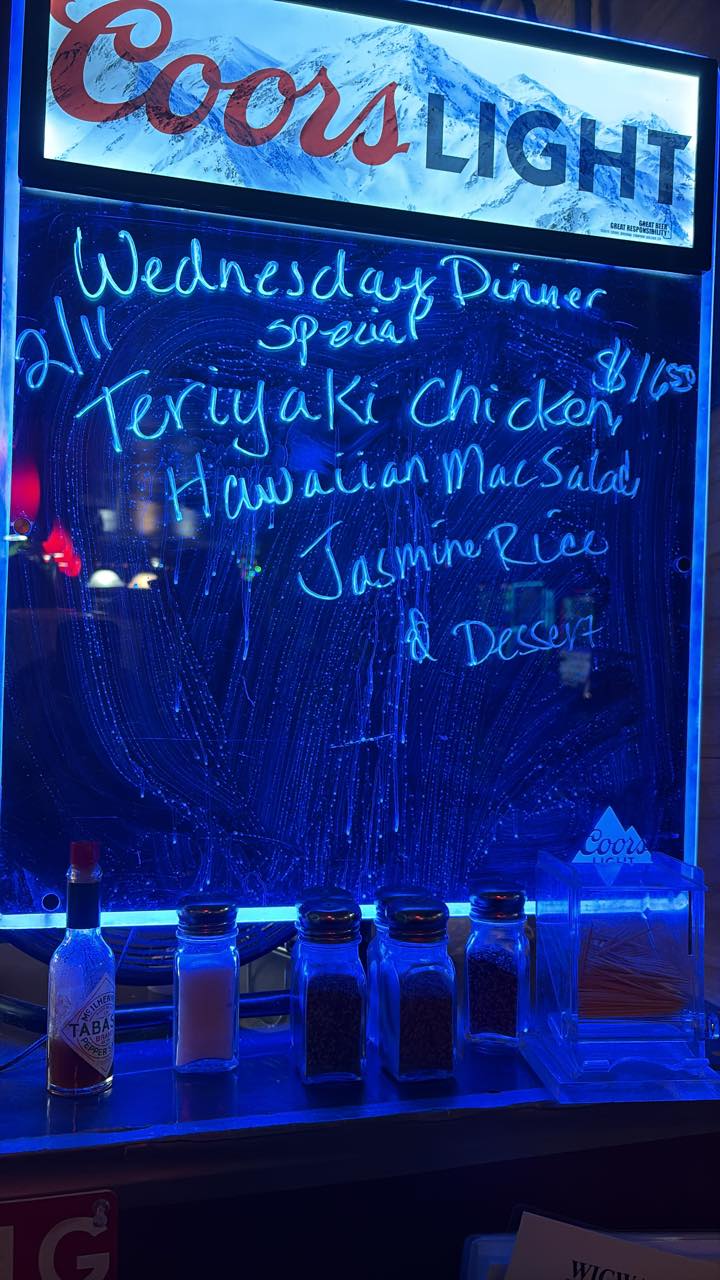 Coors LIGHT
GREAT BEER
GREAT RESPONSIBILITY
Wednesday Dinner
special
2/11
$16.50
Teriyaki Chicken,
Hawaiian Mac Salad,
Jasmine Rice
& Dessert
Coors
LIGHT
TABAS
PEPPER
G
WIGW